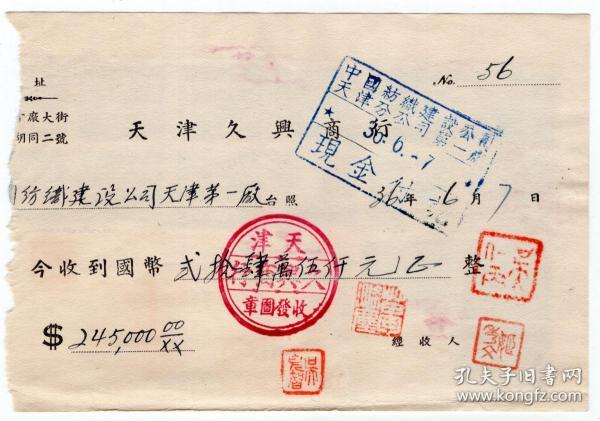 址
No. 56
廠大街
胡同二號
天津久興商行
中國紡織建設公司
天津分公司第一廠
★36.6.-7
現金付訖
紡織建設公司天津第一廠台照
36年6月7日
今收到國幣弍拾肆萬伍仟元正整
天津
久興商行
收發圖章
$ 245,000 00/XX
經收人
孔夫子旧书网
www.kongfz.com